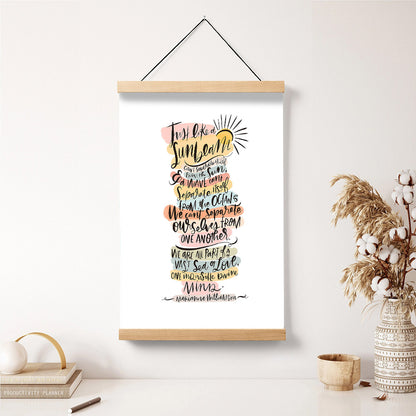 Just like a
Sunbeam
can't separate itself
from the Sun,
& a wave can't
Separate itself
from the Oceans
We can't separate
ourselves from
one another.
We are all part of a
vast Sea of Love,
one indivisible Divine
Mind.
Marianne Williamson
PRODUCTIVITY PLANNER